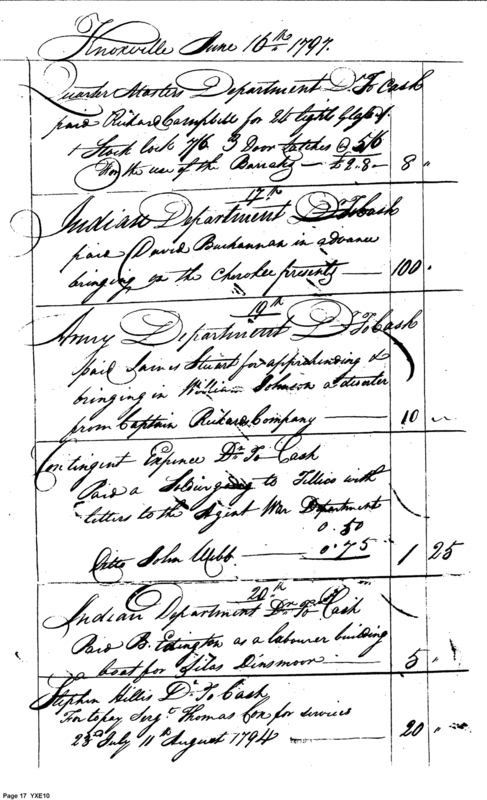 Knoxville June 16th 1797.
Quarter Masters Department Dr. To Cash
paid Richard Campbell for 24 lights Glass &
1 Stock lock 7/6 3 Door Latches @ 5/6
For the use of the Barracks — £2.8 — 8 "
17th
Indian Department Dr. To Cash
paid David Buchannan in advance
bringing on the Cherokee presents — 100 "
19th
Army Department Dr. To Cash
paid James Stuart for apprehending &
bringing in William Johnson a deserter
from Captain Rickards Company — 10 "
Contingent Expence Dr. To Cash
Paid a going to Tellico with
letters to the Agent War Department
0.50
Ditto John Webb — 0.75 1 25
20th
Indian Department Dr. To Cash
Paid B. Edington as a labourer building
a boat for Silas Dinsmoor — 5 "
Stephen Hillis Dr. To Cash
For to pay Sergt. Thomas Cox for services
23d July 11th August 1794 — 20 "
Page 17 YXE10